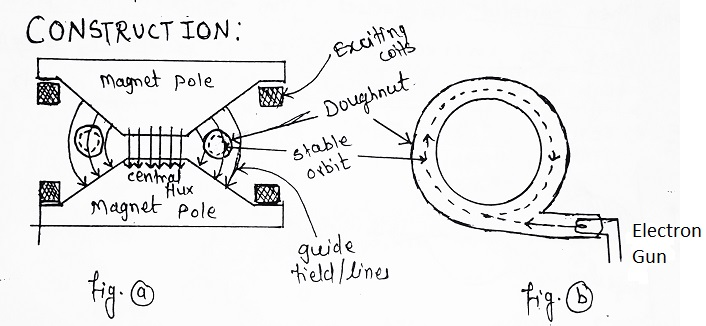 CONSTRUCTION:
Magnet pole
Exciting
coils
Doughnut
stable
orbit
central
flux
Magnet pole
guide
field/lines
Electron
Gun
Fig. a
Fig. b